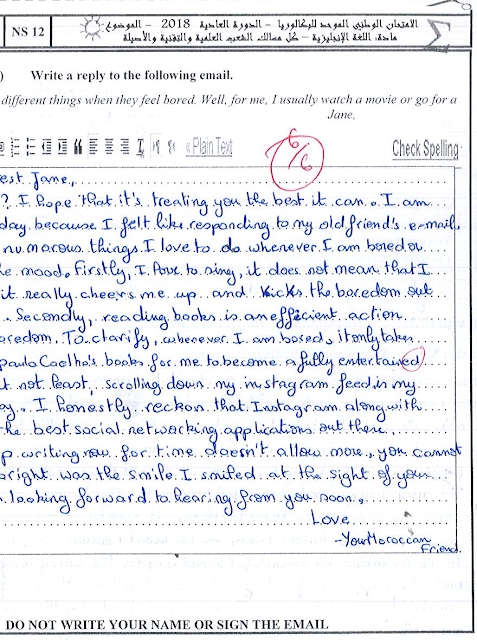 NS 12
الامتحان الوطني الموحد للبكالوريا - الدورة العادية 2018 - الموضوع
مادة: اللغة الإنجليزية - كل مسالك الشعب العلمية والتقنية والأصيلة
) Write a reply to the following email.
different things when they feel bored. Well, for me, I usually watch a movie or go for a
Jane,
« Plain Text
Check Spelling
6/6
est Jane,
? I hope that it's treating you the best it can. I am
day because I felt like responding to my old friend's e-mail.
numarous things I love to do whenever I am bored or
e mood. Firstly, I love to sing, it does not mean that I
it really cheers me up and kicks the boredom out
. Secondly, reading books is an efficient action
oredom. To clarify, whenever I am bored, it only takes
paulo Coelho's books for me to become a fully entertained
t not least, scrolling down my instagram feed is my
ay. I honestly reckon that Instagram along with
he best social networking applications out there.
p writing now for time doesn't allow more, you cannot
bright was the smile I smiled at the sight of your
looking forward to hearing from you soon,
Love
-Your Moroccan
Friend.
DO NOT WRITE YOUR NAME OR SIGN THE EMAIL